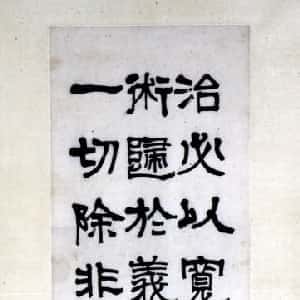 治必以寬
術歸於義
一切除非